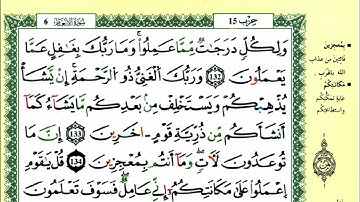 سُورَةُ الْأَنْعَامِ 6
حِزْبُ 15
وَلِكُلٍّ دَرَجَٰتٌ مِّمَّا عَمِلُوا۟ وَمَا رَبُّكَ بِغَٰفِلٍ عَمَّا
يَعْمَلُونَ 132 وَرَبُّكَ الْغَنِيُّ ذُو الرَّحْمَةِ إِنْ يَّشَأْ
يُذْهِبْكُمْ وَيَسْتَخْلِفْ مِنۢ بَعْدِكُم مَّا يَشَآءُ كَمَآ
أَنشَأَكُم مِّن ذُرِّيَّةِ قَوْمٍ ءَاخَرِينَ 133 إِنَّ مَا
تُوعَدُونَ لَأٓتٍ وَمَآ أَنتُم بِمُعْجِزِينَ 134 قُلْ يَٰقَوْمِ
اِعْمَلُوا۟ عَلَىٰ مَكَانَتِكُمْ إِنِّي عَامِلٌ فَسَوْفَ تَعْلَمُونَ
بمعجزين
فائتين من عذاب
الله بالهرب
مكانتكم
غاية تمكنكم
واستطاعتكم